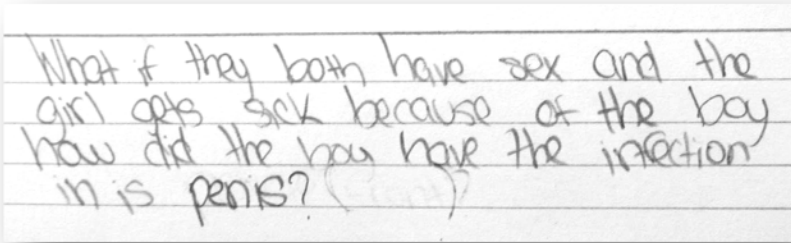 What if they both have sex and the
girl gets sick because of the boy
how did the boy have the infection
in is penis?